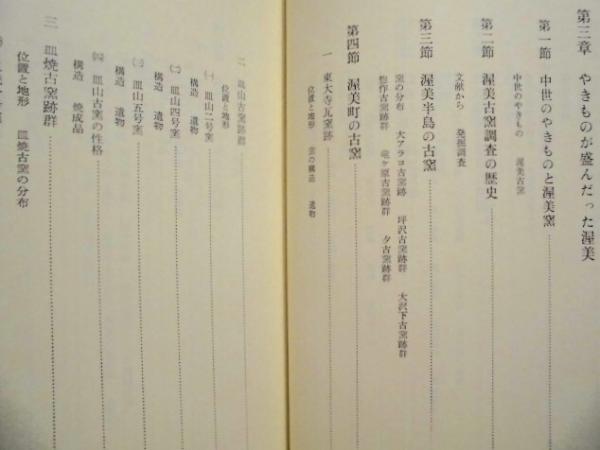 第三章 やきものが盛んだった渥美
第一節 中世のやきものと渥美窯
中世のやきもの 渥美古窯
第二節 渥美古窯調査の歴史
文献から 発掘調査
第三節 渥美半島の古窯
窯の分布 大アラコ古窯跡 坪沢古窯跡群 大沢下古窯跡群
惣作古窯跡群 竜ヶ原古窯跡群 夕古窯跡群
第四節 渥美町の古窯
一 東大寺瓦窯跡
位置と地形 窯の構造 遺物
二 皿山古窯跡群
位置と地形
㈠ 皿山二号窯
構造 遺物
㈡ 皿山四号窯
構造 遺物
㈢ 皿山五号窯
構造 遺物
㈣ 皿山古窯の性格
構造 焼成品
三 皿焼古窯跡群
位置と地形 皿焼古窯の分布